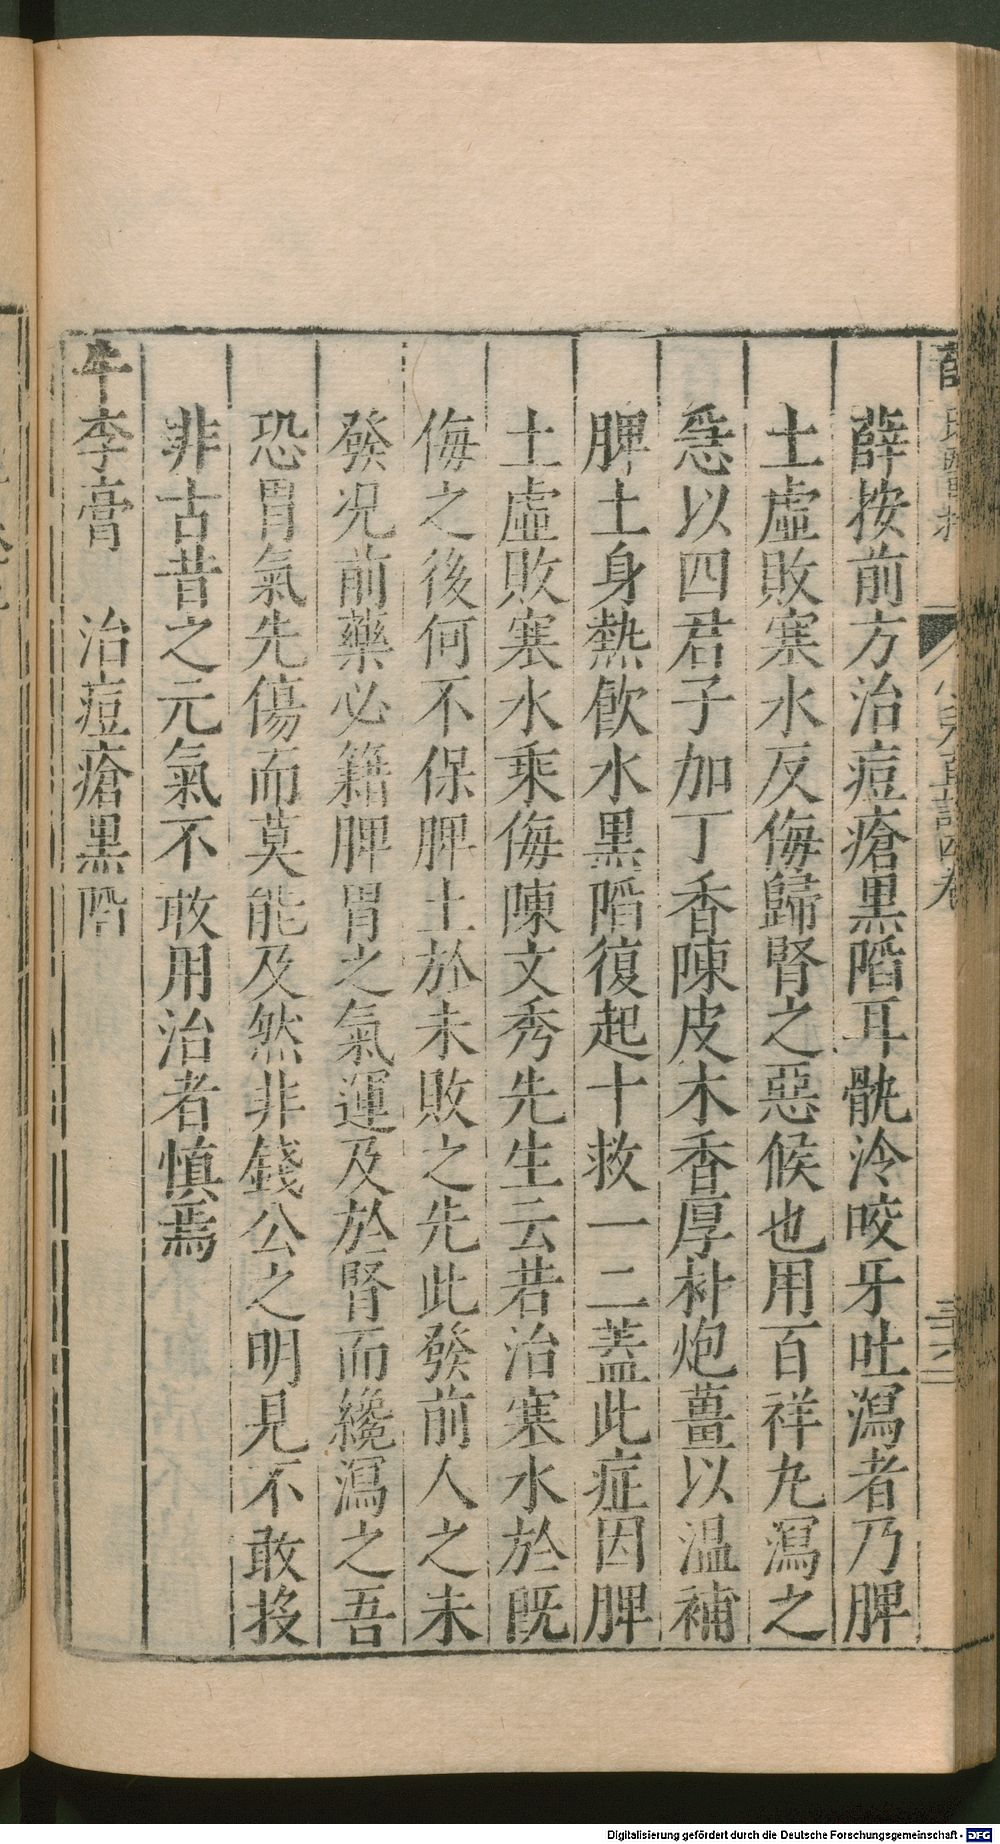 薛按前方治痘瘡黒陷耳骫冷咬牙吐瀉者乃脾
土虛敗寒水反侮歸腎之惡候也用百祥丸瀉之
急以四君子加丁香陳皮木香厚朴炮薑以温補
脾土身熱飮水黒陷復起十救一二蓋此症因脾
土虛敗寒水乘侮陳文秀先生云若治寒水於既
侮之後何不保脾土於未敗之先此發前人之未
發况前藥必籍脾胃之氣運及於腎而纔瀉之吾
恐胃氣先傷而莫能及然非錢公之明見不敢投
非古昔之元氣不敢用治者慎焉
牛李膏　治痘瘡黒陷
小兒直訣四卷
Digitalisierung gefördert durch die Deutsche Forschungsgemeinschaft - DFG